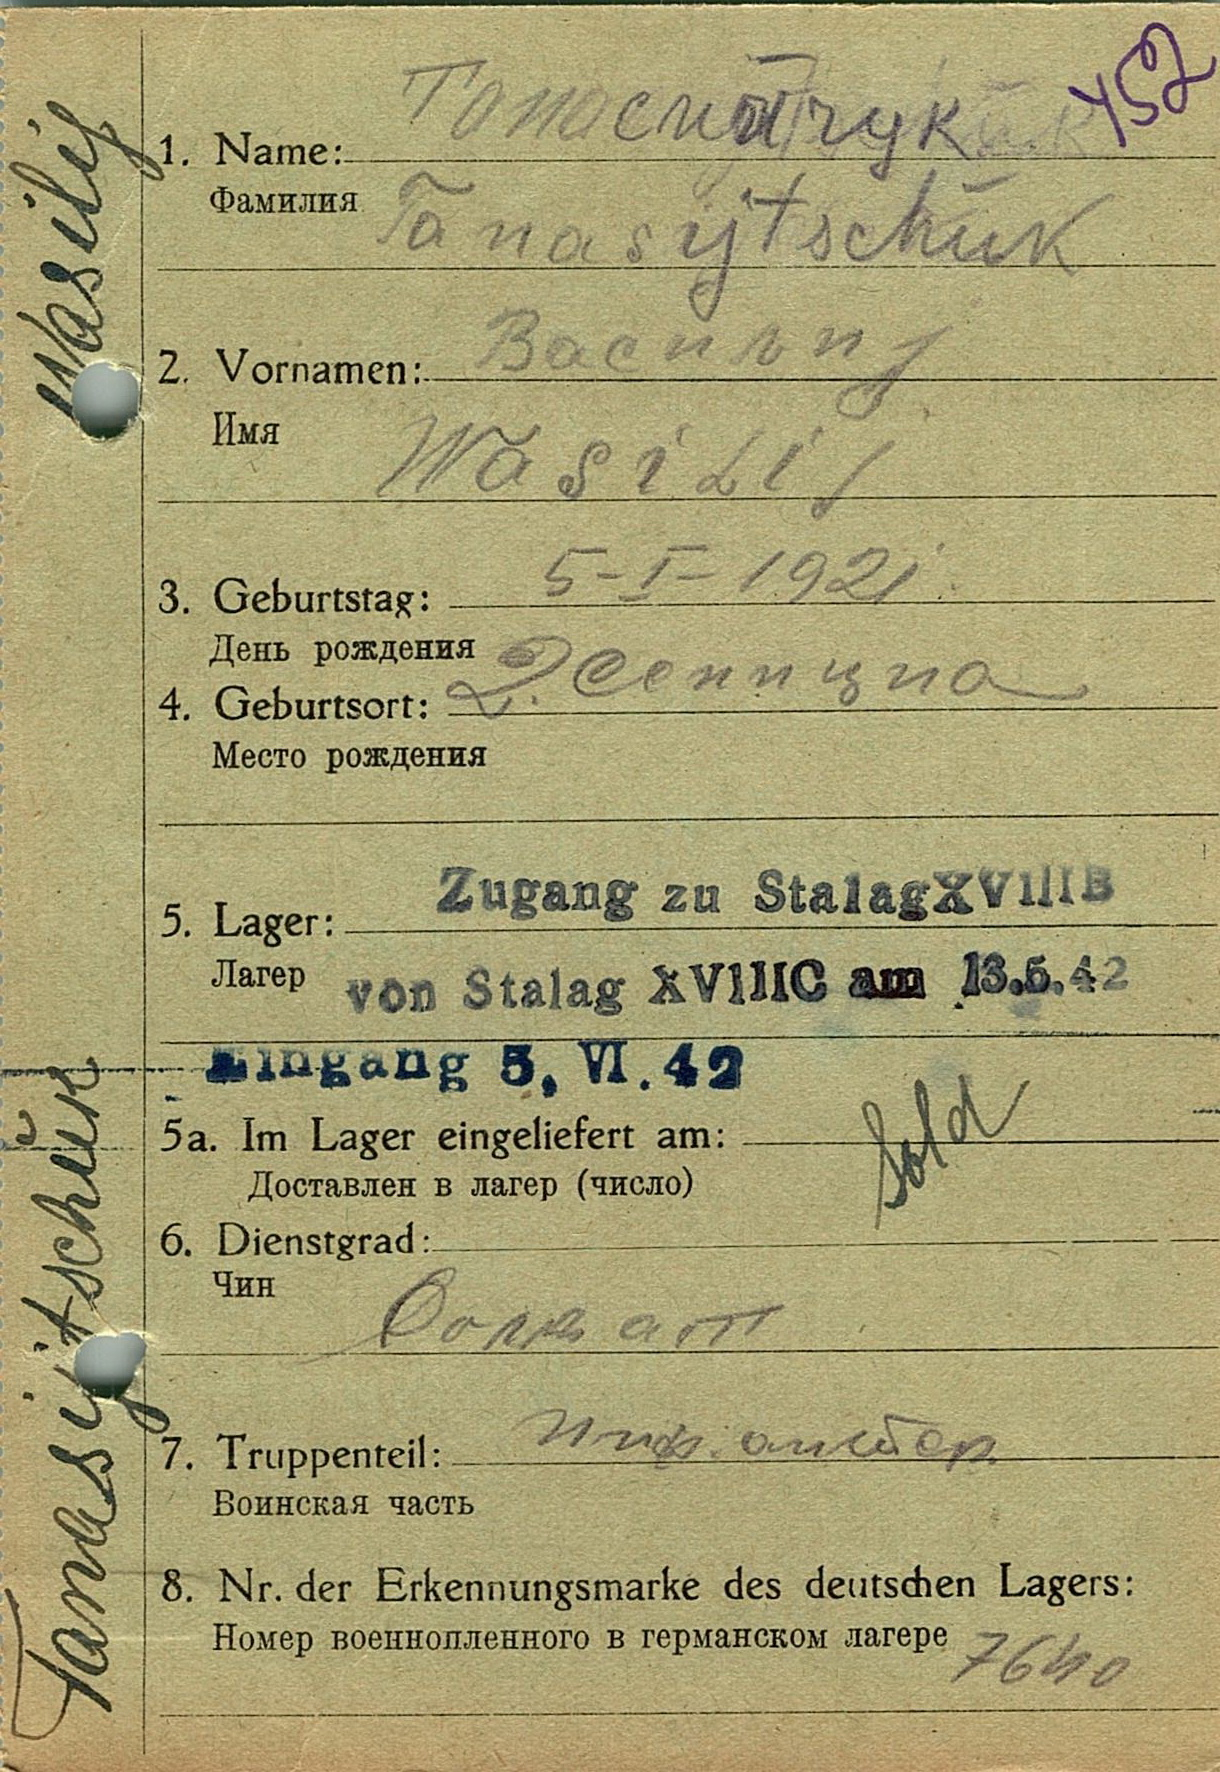 452
Wasilij
Tanasijtschuk
1. Name:
Фамилия
Tanasijtschuk
2. Vornamen: Василиj
Имя
Wasilij
3. Geburtstag: 5-I-1921
День рождения
4. Geburtsort:
Место рождения
Zugang zu Stalag XVIIIB
5. Lager:
Лагер
von Stalag XVIIIC am 13.5.42
Eingang 5. VI. 42
5a. Im Lager eingeliefert am:
Sold
Доставлен в лагер (число)
6. Dienstgrad:
Чин
Солдат
7. Truppenteil:
Воинская часть
8. Nr. der Erkennungsmarke des deutschen Lagers:
Номер военнопленного в германском лагере 7640